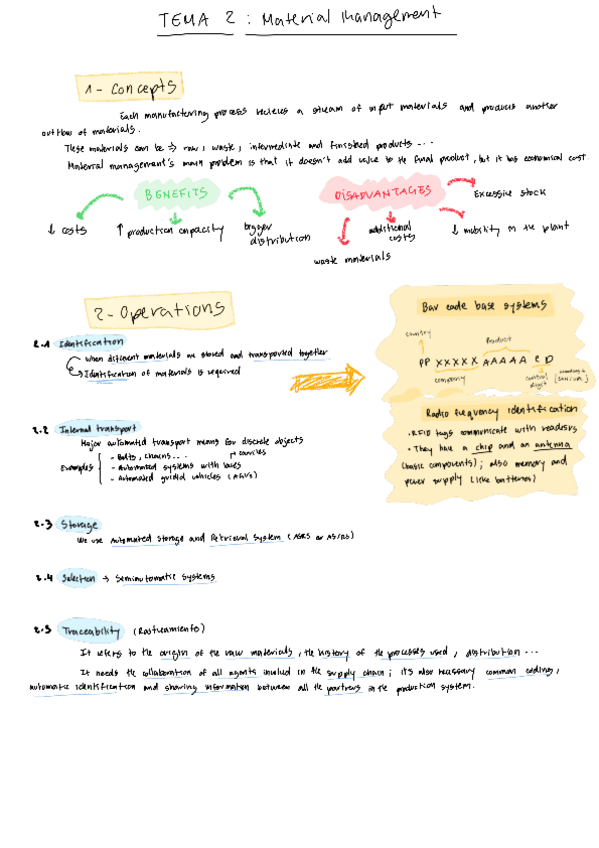 TEMA 2 : Material Management
1 - Concepts
Each manufacturing process recieves a stream of input materials and produces another
outflow of materials.
These materials can be => raw, waste, intermediate and finished products ...
Material management's main problem is that it doesn't add value to the final product, but it has economical cost.
BENEFITS
↓ costs
↑ production capacity
bigger
distribution
DISADVANTAGES
Excessive stock
waste materials
additional
costs
↓ mobility in the plant
2 - Operations
2.1 Identification
When different materials are stored and transported together
Identification of materials is required
Bar code base systems
country
Product
PP XXXXX AAAAA C D
company
control
digit
Radio frequency identification
· RFID tags communicate with readers
· They have a chip and an antenna
(basic components) ; also memory and
power supply (like batteries)
2.2 Internal transport
Major automated transport means for discrete objects
Examples
- Belts, chains ...
- Automated systems with
- Automated guided vehicles (AGVs)
2.3 Storage
We use Automated Storage and Retrieval System (ASRS or AS/RS)
2.4 Selection → Semiautomatic systems
2.5 Traceability (Rastreamiento)
It refers to the origin of the raw materials, the history of the processes used, distribution ...
It needs the collaboration of all agents involved in the supply chain ; it's also necessary common coding,
automatic identification and sharing information between all the partners in the production system.